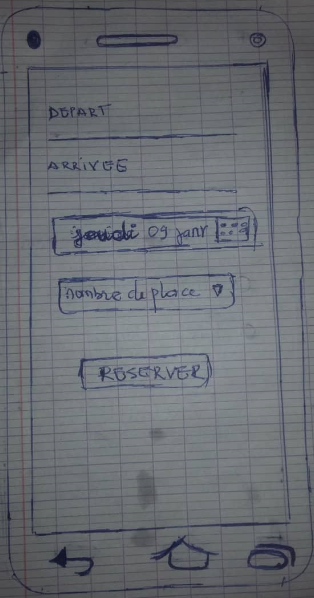 DEPART
ARRIVEE
jeudi 09 janv
nombre de place
RESERVER